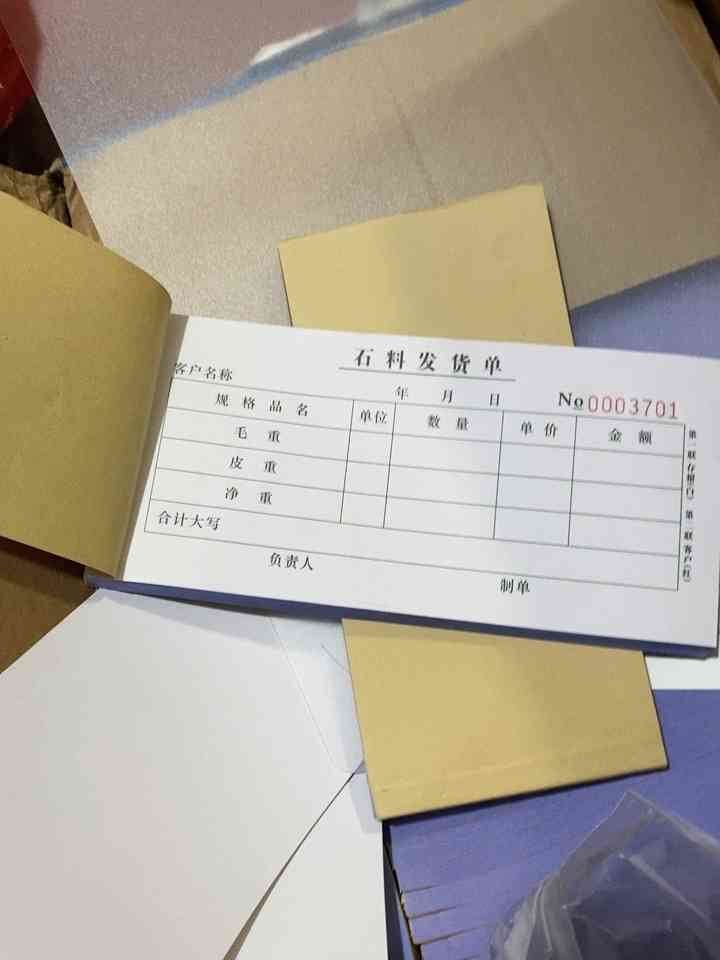 石料发货单
客户名称 年 月 日 No 0003701
规格品名 单位 数量 单价 金额
毛重
皮重
净重
合计大写
负责人 制单
第一联存根(白) 第二联客户(红)